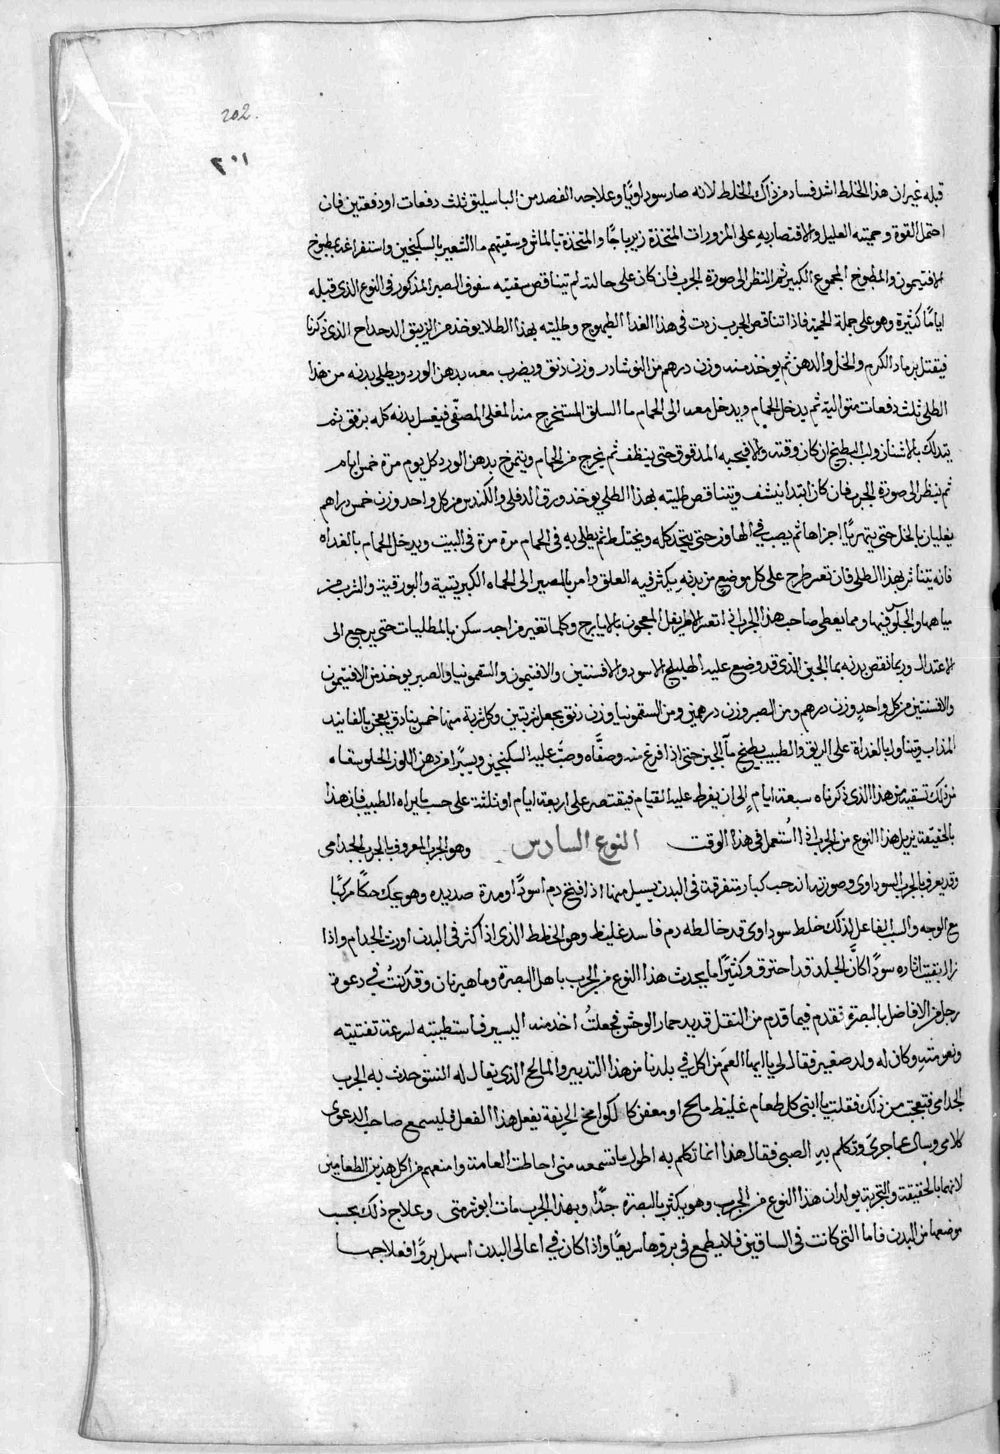 202.
٢٠١
قبله غير ان هذا الخلط اشد فساد من ذاك الخلط لانه صار سوداويًا وعلاجه الفصد من الباسليق ثلث دفعات او دفعتين فان
احتمل القوة وحميته العليل والاقتصار به على المزورات المتخذة زيرباجًا والمتخذة بالماش وسقيتهم ما الشعير بالسكنجبين واستفراغه بمطبوخ
الافتيمون والمطبوخ المجموع الكبير ثم النظر الى صورة الجرب فان كان على حالته لم تيناقص سقيته سفوف الصبر المذكور فى النوع الذى قبله
ايامًا كثيرة وهو على جملة الحمية فاذا تناقص الجرب زدت فى هذا الغدا الطيهوج وطليته بهذا الطلا يوخذ من الزيبق الدحداح الذى ذكرنا
فيقتل برماد الكرم والخل والدهن ثم يوخذ منه وزن درهم من النوشادر وزن دنق ويضرب معه بدهن الورد ويطلى بدنه من هذا
الطلى ثلث دفعات متوالية ثم يدخل الحمام ويدخل معه الى الحمام ما السلق المستخرج منه المغلى المصفّى فيغسل بدنه كله برفق ثم
يتدلك بالاشنان ولب البطيخ ان كان وقته والا فبحبه المدقوق حتى ينظف ثم يخرج من الحمام ويتمرخ بدهن الورد كل يوم مرة خمس ايام
ثم ينظر الى صورة الجرب فان كان ابتدا ينشف وتيناقص طليته بهذا الطلى يوخذ ورق الدفلى والكندس من كل واحد وزن خمس دراهم
يغليان بالخل حتى يتهريا اجزاها ثم يصب فى الهاون حتى يتحد كله ويختلط ثم يطلى به فى الحمام مرة مرة فى البيت ويدخل الحمام بالغداه
فانه يتناثر بهذا الطلى فان تعسر طرح على كل موضع من بدنه يكثر فيه العلق وامر بالمصير الى الحماه الكبريتية والبورقية والشرب من
مياهها والجلوس فيها ومما يعطى صاحب هذا الجرب اذا تعسر الاطريفل المعجون بالايارج وكلما تغير مزاجه سكن بالمطليات حتى يرجع الى
الاعتدال وربما نقص بدنه بما الجبن الذى قد وضع عليه الهليلج الاسود والافسنتين والافتيمون والسقمونيا والصبر يوخذ من الافتيمون
والافسنتين من كل واحدٍ وزن درهم ومن الصبر وزن درهمين ومن السقمونيا وزن دنق يجعل شربتين وكل شربة منها خمس بنادق يعجن بالفانيد
المذاب ويتناول بالغداة على الريق والطبيب يطبخ مآ الجبن حتى اذا فرغ منه وصفّاه وصبّ عليه السكنجبين ويسيرًا من دهن اللوز الحلو سقاه
من ذلك تسقيه من هذا الذى ذكرناه سبعة ايام إلى ان يفرط عليه القيام فيقتصر على اربعة ايام او ثلثة على حسب ما يراه الطبيب فان هذا
بالحقيقة يزيل هذا النوع من الجرب اذا استعمل فى هذا الوقت النوع السادس وهو الجرب المعروف بالجرب الجذامى
وقد يعرف بالجرب السوداوى وصورته انه حب كبار متفرقة فى البدن يسيل منها اذا فتح دم اسودًا ومدة صديده وهو يحك حكًا مركبًا
مع الوجه والسبب الفاعل لذلك خلط سوداوى قد خالطه دم فاسد غليظ وهو الخلط الذى اذا كثر فى البدن اورث الجذام واذا
زال بقيت اثاره سودًا كأنَّ الجلد قد احترق وكثيرًا ما يحدث هذا النوع من الجرب باهل البصرة وماهيربان وقد كنتُ فى دعوة
رجل من الافاضل بالبصرة تقدم فيما قدم من النقل قديد حمار الوحش فجعلتُ اخذ منه اليسير فاستطيبته لسرعة تفتيته
ونعومته وكان له ولد صغير فقال لى يا ايها العم من اكل فى بلدنا من هذا التدبير والمالح الذى يقال له الشنو حدث به الجرب
الجذامى فتعجبت من ذلك فقلت يا ابنى كل طعام غليظ مالح او معفن كالكوامخ الحريفة يفعل هذا الفعل فليسمع صاحب الدعوى
كلامى وسال عما جرى وتكلم به الصبى فقال هذا انما تكلم به اطول ما تسمعه منى احاطت العامة وامنعهم من اكل هذين الطعامين
لانهما بالحقيقة والتجربة يولدان هذا النوع من الجرب وهو يكثر بالبصرة جدًّا وبهذا الجرب مات ابو ثرمتى وعلاج ذلك بحسب
موضعها من البدن فاما التى كانت فى الساقين فلا يطمع فى بروها سريعًا واذا كان فى اعالى البدن اسهل بروًّا فعلاجها